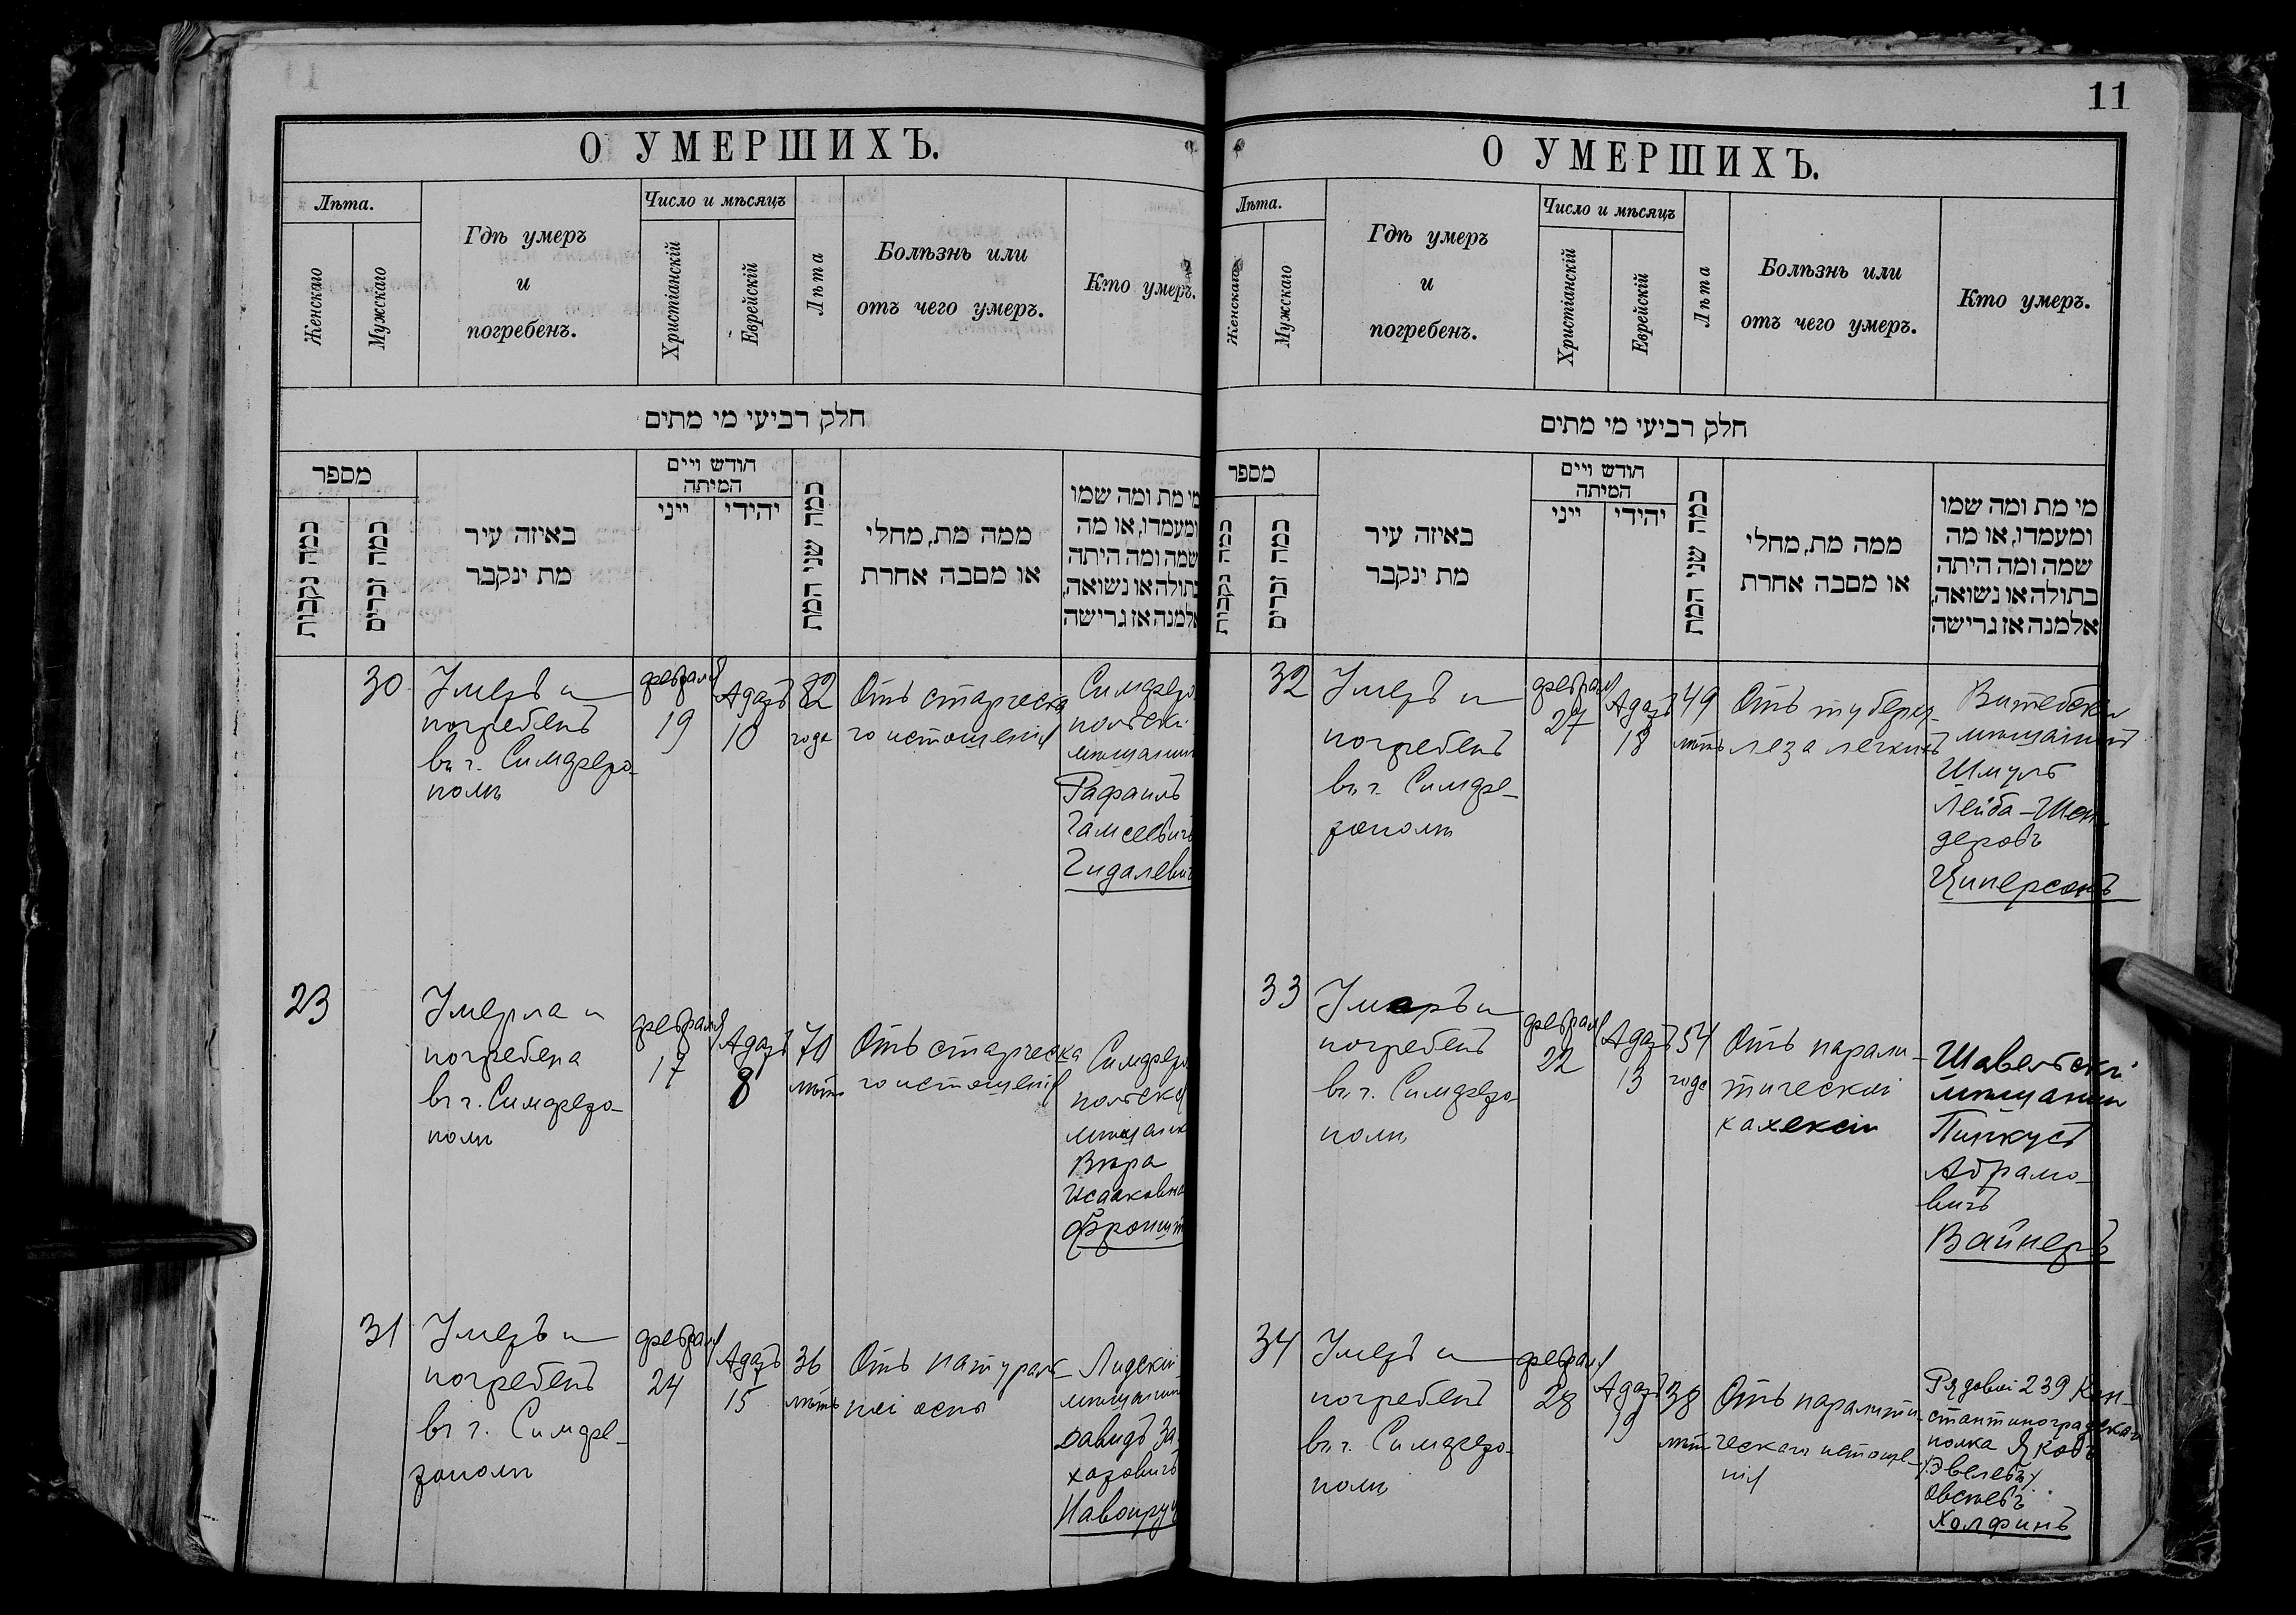 11
О УМЕРШИХЪ.
Лѣта.
Женскаго
Мужскаго
Гдѣ умеръ
и
погребенъ.
Число и мѣсяцъ
Христіанскій
Еврейскій
Лѣта
Болѣзнь или
отъ чего умеръ.
Кто умеръ.
חלק רביעי מי מתים
מספר
כמה נקבות
כמה זכרים
באיזה עיר
מת ינקבר
חודש ויים
המיתה
ייני
יהודי
כמה שני המת
ממה מת, מחלי
או מסבה אחרת
מי מת ומה שמו
ומעמדו, או מה
שמה ומה היתה
בתולה או נשואה,
אלמנה אז גרישה
30
Умеръ и
погребенъ
въ г. Симферо-
полѣ
февраля
19
Адаръ
10
82
года
Отъ старческа
го истощенія
Симферо
польскі
мѣщанин
Рафаилъ
Гидалевич
23
Умерла и
погребена
въ г. Симферо-
полѣ
февраля
17
Адаръ
8
70
лѣтъ
Отъ старческа
го истощенія
Симферо
польска
мѣщанк
Вѣра
Исааковна
31
Умеръ и
погребенъ
въ г. Симфе-
рополѣ
февраля
24
Адаръ
15
36
лѣтъ
Отъ натураль-
ной оспы
Лидскій
мѣщанин
Давидъ За
харовичъ
О УМЕРШИХЪ.
Лѣта.
Женскаго
Мужскаго
Гдѣ умеръ
и
погребенъ.
Число и мѣсяцъ
Христіанскій
Еврейскій
Лѣта
Болѣзнь или
отъ чего умеръ.
Кто умеръ.
חלק רביעי מי מתים
מספר
כמה נקבות
כמה זכרים
באיזה עיר
מת ינקבר
חודש ויים
המיתה
ייני
יהודי
כמה שני המת
ממה מת, מחלי
או מסבה אחרת
מי מת ומה שמו
ומעמדו, או מה
שמה ומה היתה
בתולה או נשואה,
אלמנה אז גרישה
32
Умеръ и
погребенъ
въ г. Симфе-
рополѣ
февраля
27
Адаръ
18
49
лѣтъ
Отъ туберку-
леза легкихъ
Витебскій
мѣщанинъ
Шмуль
Лейба-Шен-
деровъ
Циперсонъ
33
Умеръ и
погребенъ
въ г. Симферо-
полѣ
февраля
22
Адаръ
13
54
года
Отъ парали-
тической
кахексіи
Шавельскі
мѣщанин
Пинкусъ
Абрамо-
вичъ
Вайнеръ
34
Умеръ и
погребенъ
въ г. Симферо-
полѣ
февраля
28
Адаръ
19
38
лѣтъ
Отъ паралити-
ческаго истоще-
нія
Рядовой 239 Кон-
стантиноградскаго
полка Яковъ
Овсѣевъ
Холфинъ